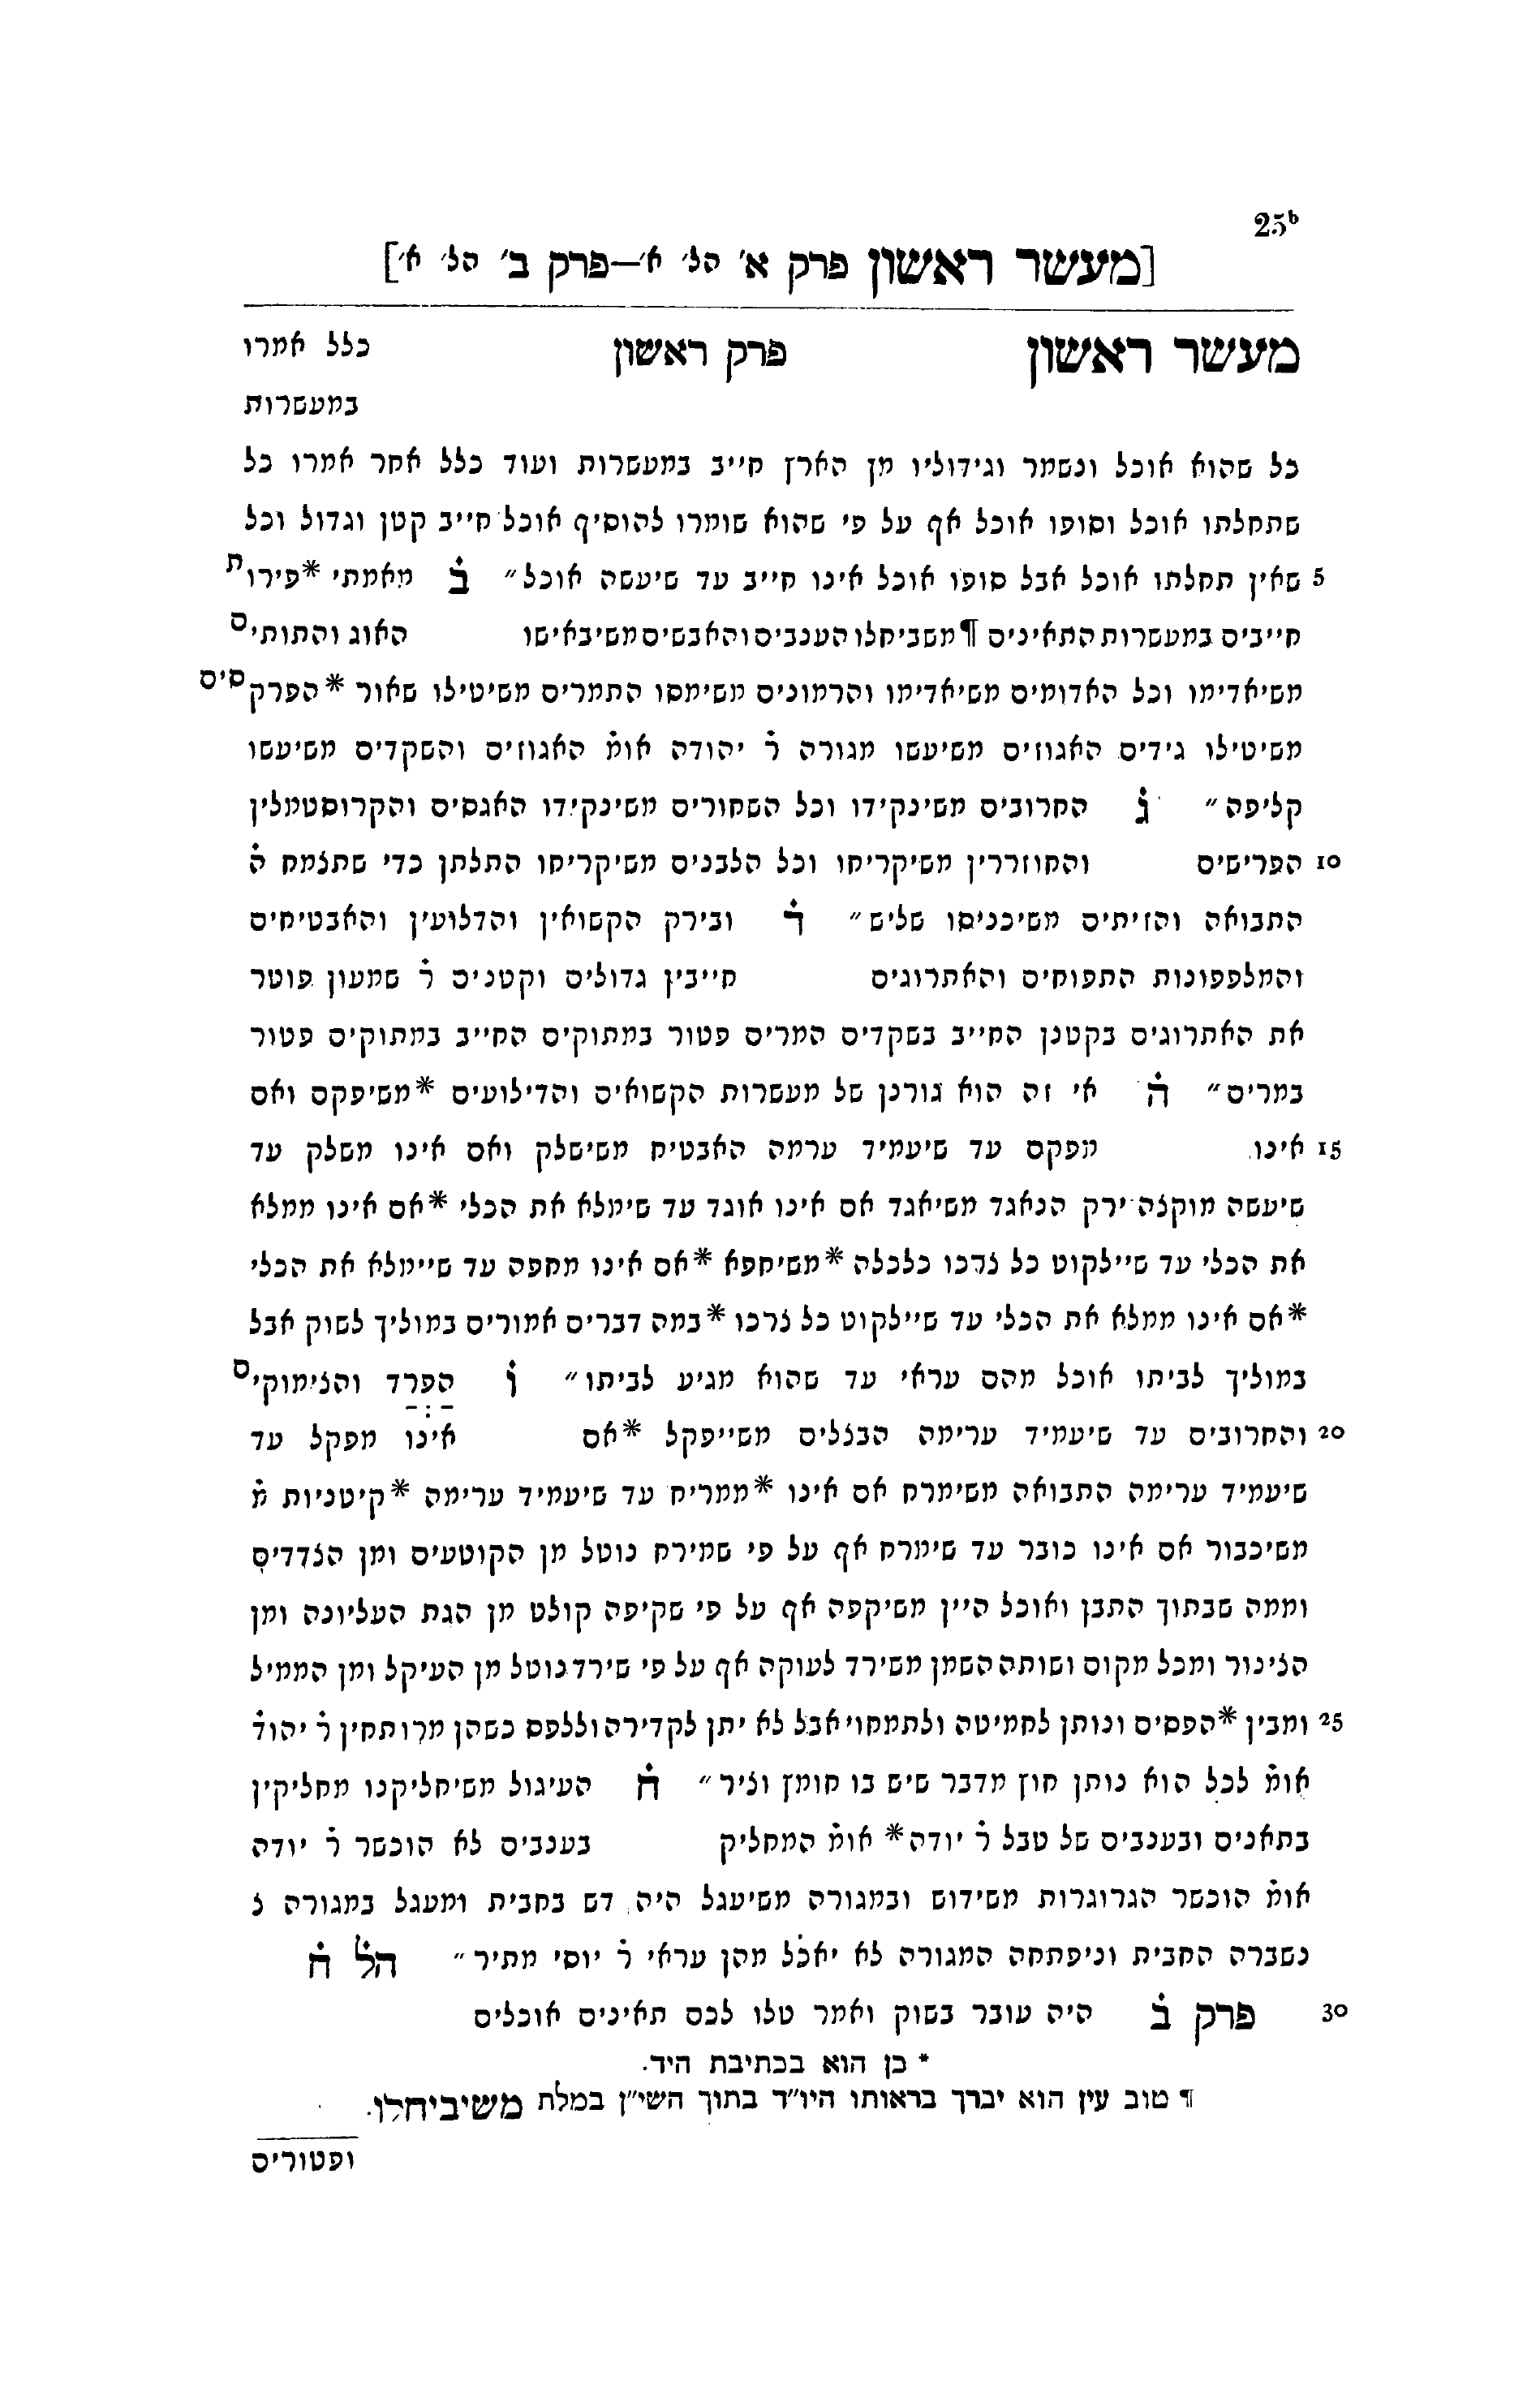 25ᵇ
[מעשר ראשון פרק א׳ הל׳ א׳—פרק ב׳ הל׳ א׳]
מעשר ראשון פרק ראשון כלל אמרו
במעשרות
כל שהוא אוכל ונשמר וגידוליו מן הארץ חייב במעשרות ועוד כלל אחר אמרו כל
שתחלתו אוכל וסופו אוכל אף על פי שהוא שומרו להוסיף אוכל חייב קטן וגדול וכל
5 שאין תחלתו אוכל אבל סופו אוכל אינו חייב עד שיעשה אוכל״ ב̇ מאמתי *פירות
חייבים במעשרות התאינים ¶משביחלו הענבים והאבשים משיבאישו האוג והתותים
משיאדימו וכל האדומים משיאדימו והרמונים משימסו התמרים משיטילו שאור *הפרקסים
משיטילו גידים האגוזים משיעשו מגורה ר̇ יהודה אומ̇ האגוזים והשקדים משיעשו
קליפה״ ג̇ החרובים משינקידו וכל השחורים משינקידו האגסים והקרוסטמלין
10 הפרישים והחוזררין משיקריחו וכל הלבנים משיקריחו התלתן כדי שתצמח ה̇
התבואה והזיתים משיכניסו שליש״ ד̇ ובירק הקשואין והדלועין והאבטיחים
והמלפפונות התפוחים והאתרוגים חייבין גדולים וקטנים ר̇ שמעון פוטר
את האתרוגים בקטנן החייב בשקדים המרים פטור במתוקים החייב במתוקים פטור
במרים״ ה̇ אי זה הוא גורנן של מעשרות הקשואים והדילועים *משיפקס ואם
15 אינו מפקס עד שיעמיד ערמה האבטיח משישלק ואם אינו משלק עד
שיעשה מוקצה ירק הנאגד משיאגד אם אינו אוגד עד שימלא את הכלי *אם אינו ממלא
את הכלי עד שיילקוט כל צרכו כלכלה *משיחפא *אם אינו מחפה עד שיימלא את הכלי
*אם אינו ממלא את הכלי עד שיילקוט כל צרכו *במה דברים אמורים במוליך לשוק אבל
במוליך לביתו אוכל מהם עראי עד שהוא מגיע לביתו״ ו̇ הפרד והצימוקים
20 והחרובים עד שיעמיד ערימה הבצלים משייפקל *אם אינו מפקל עד
שיעמיד ערימה התבואה משימרח אם אינו *ממריח עד שיעמיד ערימה *קיטניות מ̇
משיכבור אם אינו כובר עד שימרח אף על פי שמירח נוטל מן הקוטעים ומן הצדדים
וממה שבתוך התבן ואוכל היין משיקפה אף על פי שקיפה קולט מן הגת העליונה ומן
הצינור ומכל מקום ושותה השמן משירד לעוקה אף על פי שירד נוטל מן העיקל ומן הממיל
25 ומבין *הפסים ונותן לחמיטה ולתמחוי אבל לא יתן לקדירה וללפס כשהן מרותחין ר̇ יהוד̇
אומ̇ לכל הוא נותן חוץ מדבר שיש בו חומץ וציר״ ח̇ העיגול משיחליקנו מחליקין
בתאנים ובענבים של טבל ר̇ יודה* אומ̇ המחליק בענבים לא הוכשר ר̇ יודה
אומ̇ הוכשר הגרוגרות משידוש ובמגורה משיעגל היה דש בחבית ומעגל במגורה צ
נשברה החבית וניפתחה המגורה לא יאכל מהן עראי ר̇ יוסי מתיר״ הל̇ ח̇
30 פרק ב̇ היה עובר בשוק ואמר טלו לכם תאינים אוכלים
* כן הוא בכתיבת היד.
¶ טוב עין הוא יברך בראותו היו״ד בתוך השי״ן במלת משיביחלו.
ופטורים